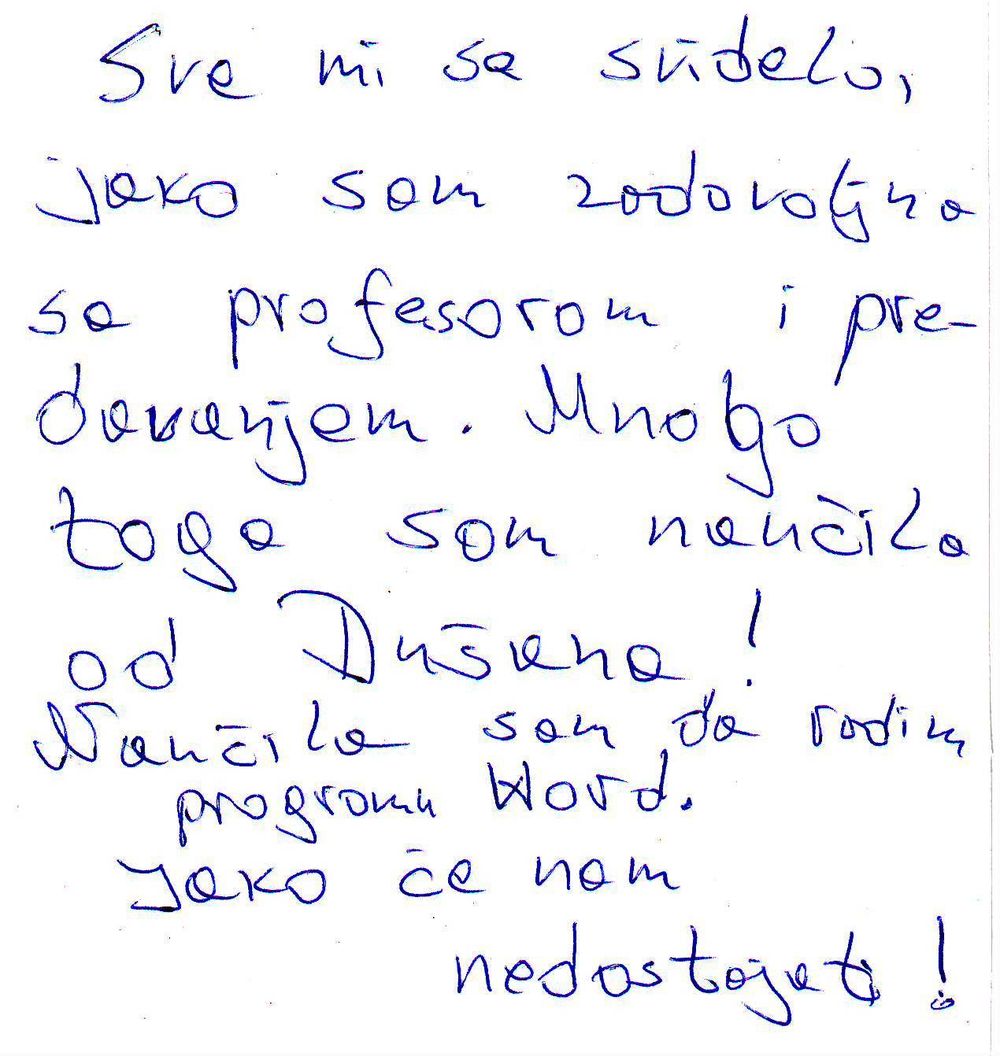 Sve mi se svidelo,
jako sam zadovoljna
sa profesorom i pre-
davanjem. Mnogo
toga sam naučila
od Dušana!
Naučila sam da radim
programu Word.
Jako će nam
nedostajati!